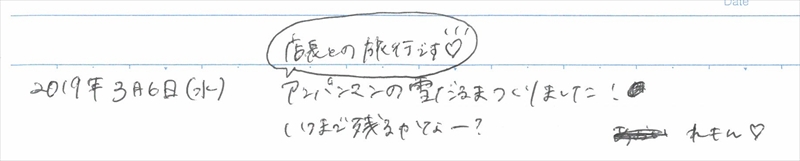 Date
店長との旅行です♡
2019年3月6日(水) アンパンマンの雪だるまつくりました！
いつまで残るかなー？
れもん♡